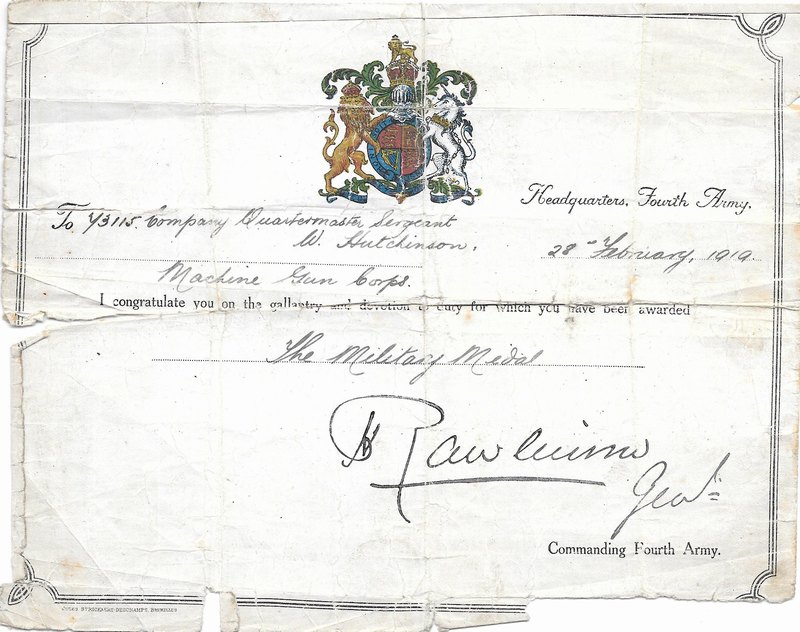 Headquarters, Fourth Army.
To 43115. Company Quartermaster Sergeant
W. Hutchinson,
28th February, 1919.
Machine Gun Corps.
I congratulate you on the gallantry and devotion to duty for which you have been awarded
The Military Medal
H Rawlinson
Genl
Commanding Fourth Army.
DESCHAMPS, BRUXELLES